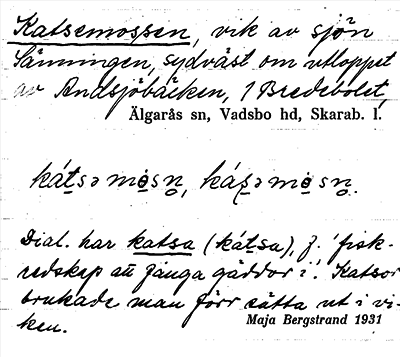 Katsemossen, vik av sjön
Sänningen, sydväst om utloppet
av Andsjöbäcken, / Bredebolet,
Älgarås sn, Vadsbo hd, Skarab. l.
kát̠sə mo̠sn̥, káʂə mo̠sn̥.
Dial. har katsa (kát̠sa), f. 'fisk-
redskap att fånga gäddor i'. Katsor
brukade man förr sätta ut i vi-
ken.
Maja Bergstrand 1931